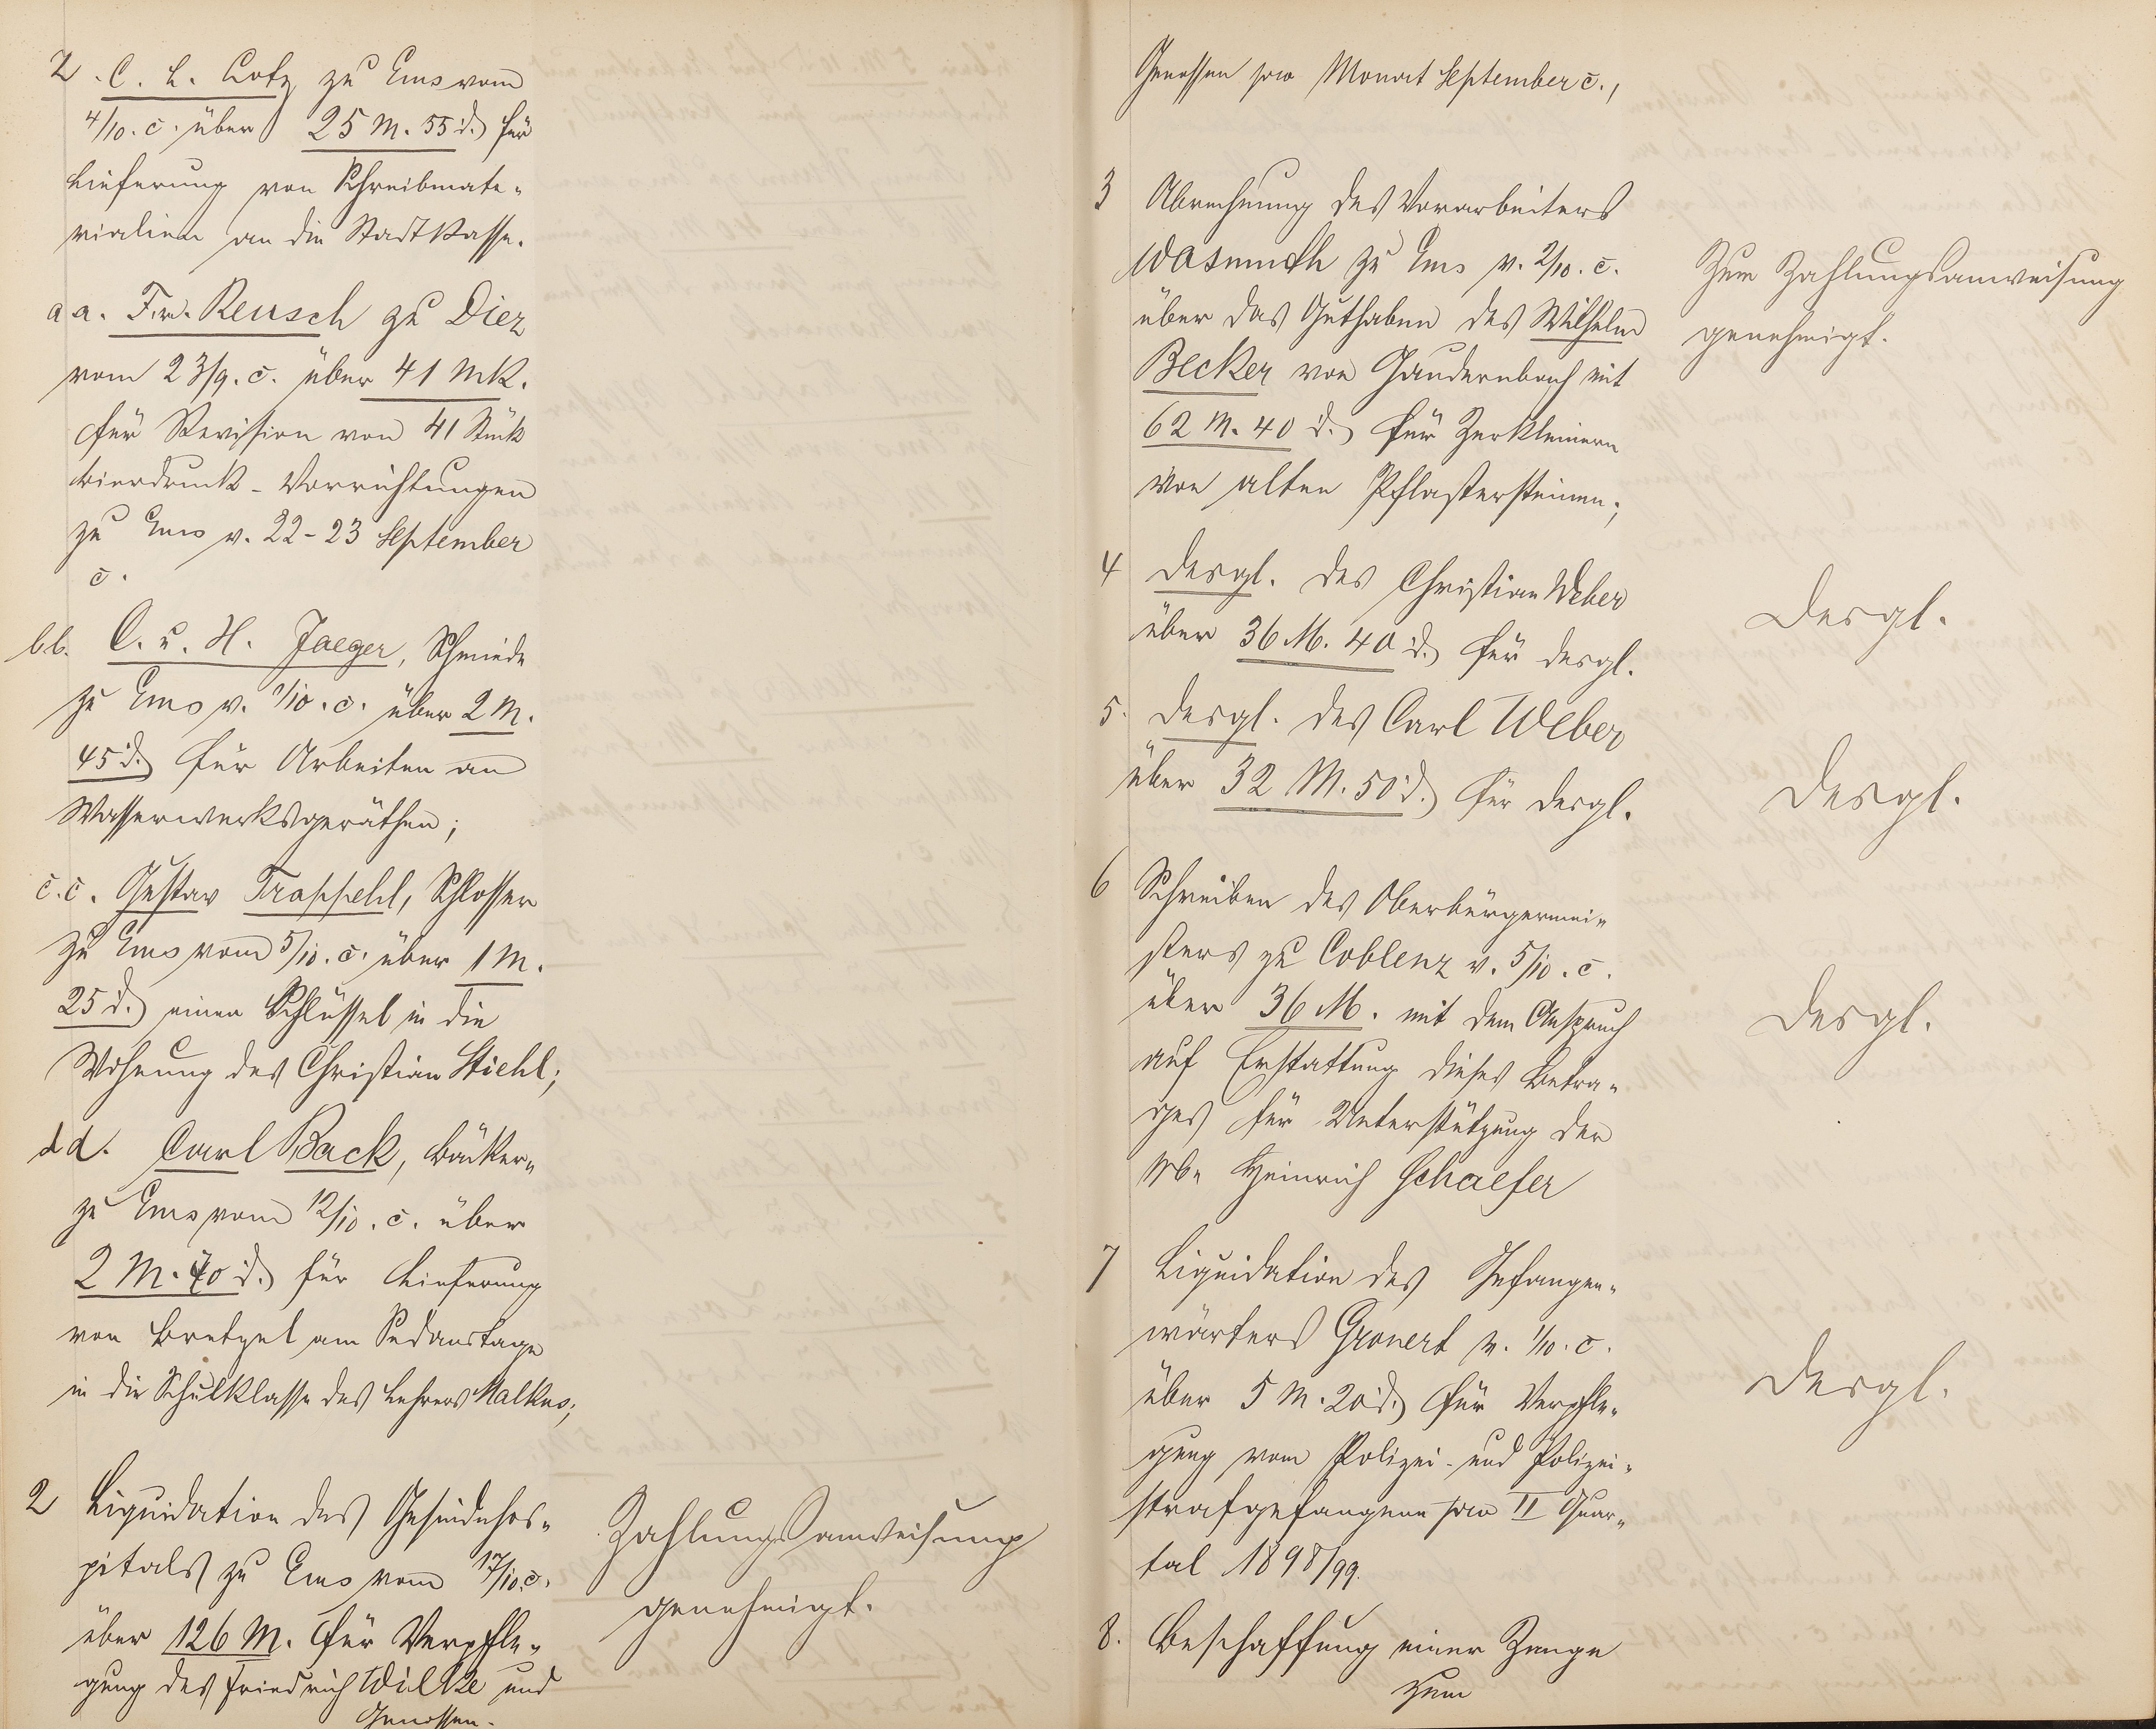 Z. C. L. Lotz zu Ems vom
4/10. c. über 25 M. 55 d. für
Lieferung von Schreibmate-
rialien an die Stadtkasse.
aa. Fr. Reusch zu Diez
vom 23/9. c. über 41 Mk.
für Revision von 41 Stück
Bierdruck-Vorrichtungen
zu Ems v. 22-23 September
c.
bb. C. u. H. Jaeger, Schmiede
zu Ems v. 1/10. c. über 2 M.
45 d. für Arbeiten an
Wasserwerksgeräthen;
c.c. Gustav Trappehl, Schlosser
zu Ems vom 5/10. c. über 1 M.
25 d. einen Schlüssel in die
Wohnung des Christian Stiehl;
dd. Carl Back, Bäcker
zu Ems vom 12/10. c. über
2 M. 70 d. für Lieferung
von Bretzel am Sedanstage
in die Schulklasse des Lehrers Malkus;
2 Liquidation des Gesindehos-
pitals zu Ems vom 17/10. c.
über 126 M. für Verpfle-
gung des Friedrich Wilke und
Genossen.
Zahlungsanweisung
genehmigt.
Genossen pro Monat September c.,
3 Abrechnung des Vorarbeiters
Wasmuth zu Ems v. 2/10. c.
über das Guthaben des Wilhelm
Becker von Gaudernbach mit
62 M. 40 d. für Zerkleinern
von alten Pflastersteinen;
Zur Zahlungsanweisung
genehmigt.
4 desgl. des Christian Weber
über 36 M. 40 d. für desgl.
Desgl.
5. desgl. des Carl Weber
über 32 M. 50 d. für desgl.
Desgl.
6 Schreiben des Oberbürgermei-
sters zu Coblenz v. 5/10. c.
über 36 M. mit dem Anspruch
auf Erstattung dieses Betra-
ges für Unterstützung der
Wb. Heinrich Schaefer
Desgl.
7 Liquidation des Gefangen-
wärters Gronert v. 1/10. c.
über 5 M. 20 d. für Verpfle-
gung vom Polizei- und Polizei-
strafgefangene pro II Quar-
tal 1898/99.
Desgl.
8. Beschaffung einer Zange
zum